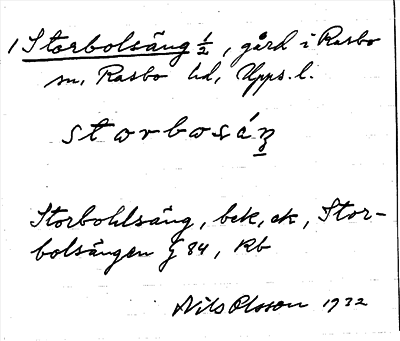 1 Storbolsäng ½, gård i Rasbo
sn, Rasbo hd, Upps. l.
storbosáŋ̲
Storbohlsäng, bek, ek, Stor-
bolsängen g 84, Kb
Nils Olsson 1932